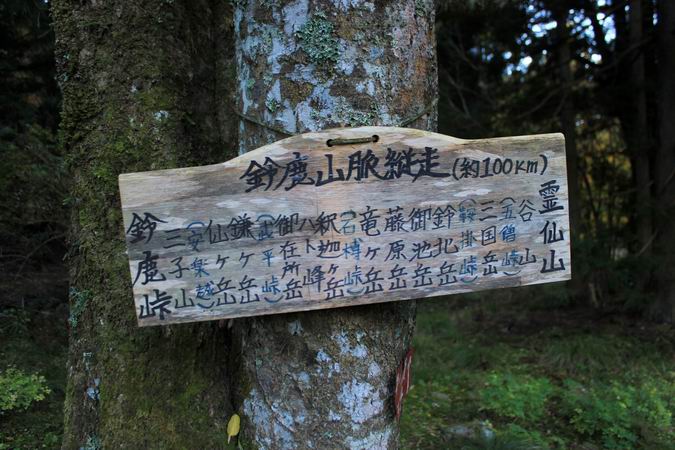 鈴鹿山脈縦走(約100Km)
霊仙山
谷山
(五僧峠)
三国岳
(鞍掛峠)
鈴北岳
御池岳
藤原岳
竜ヶ岳
(石榑峠)
釈迦ヶ岳
ハト峰
御在所岳
(武平峠)
鎌ヶ岳
仙ヶ岳
(安楽越)
三子山
鈴鹿峠